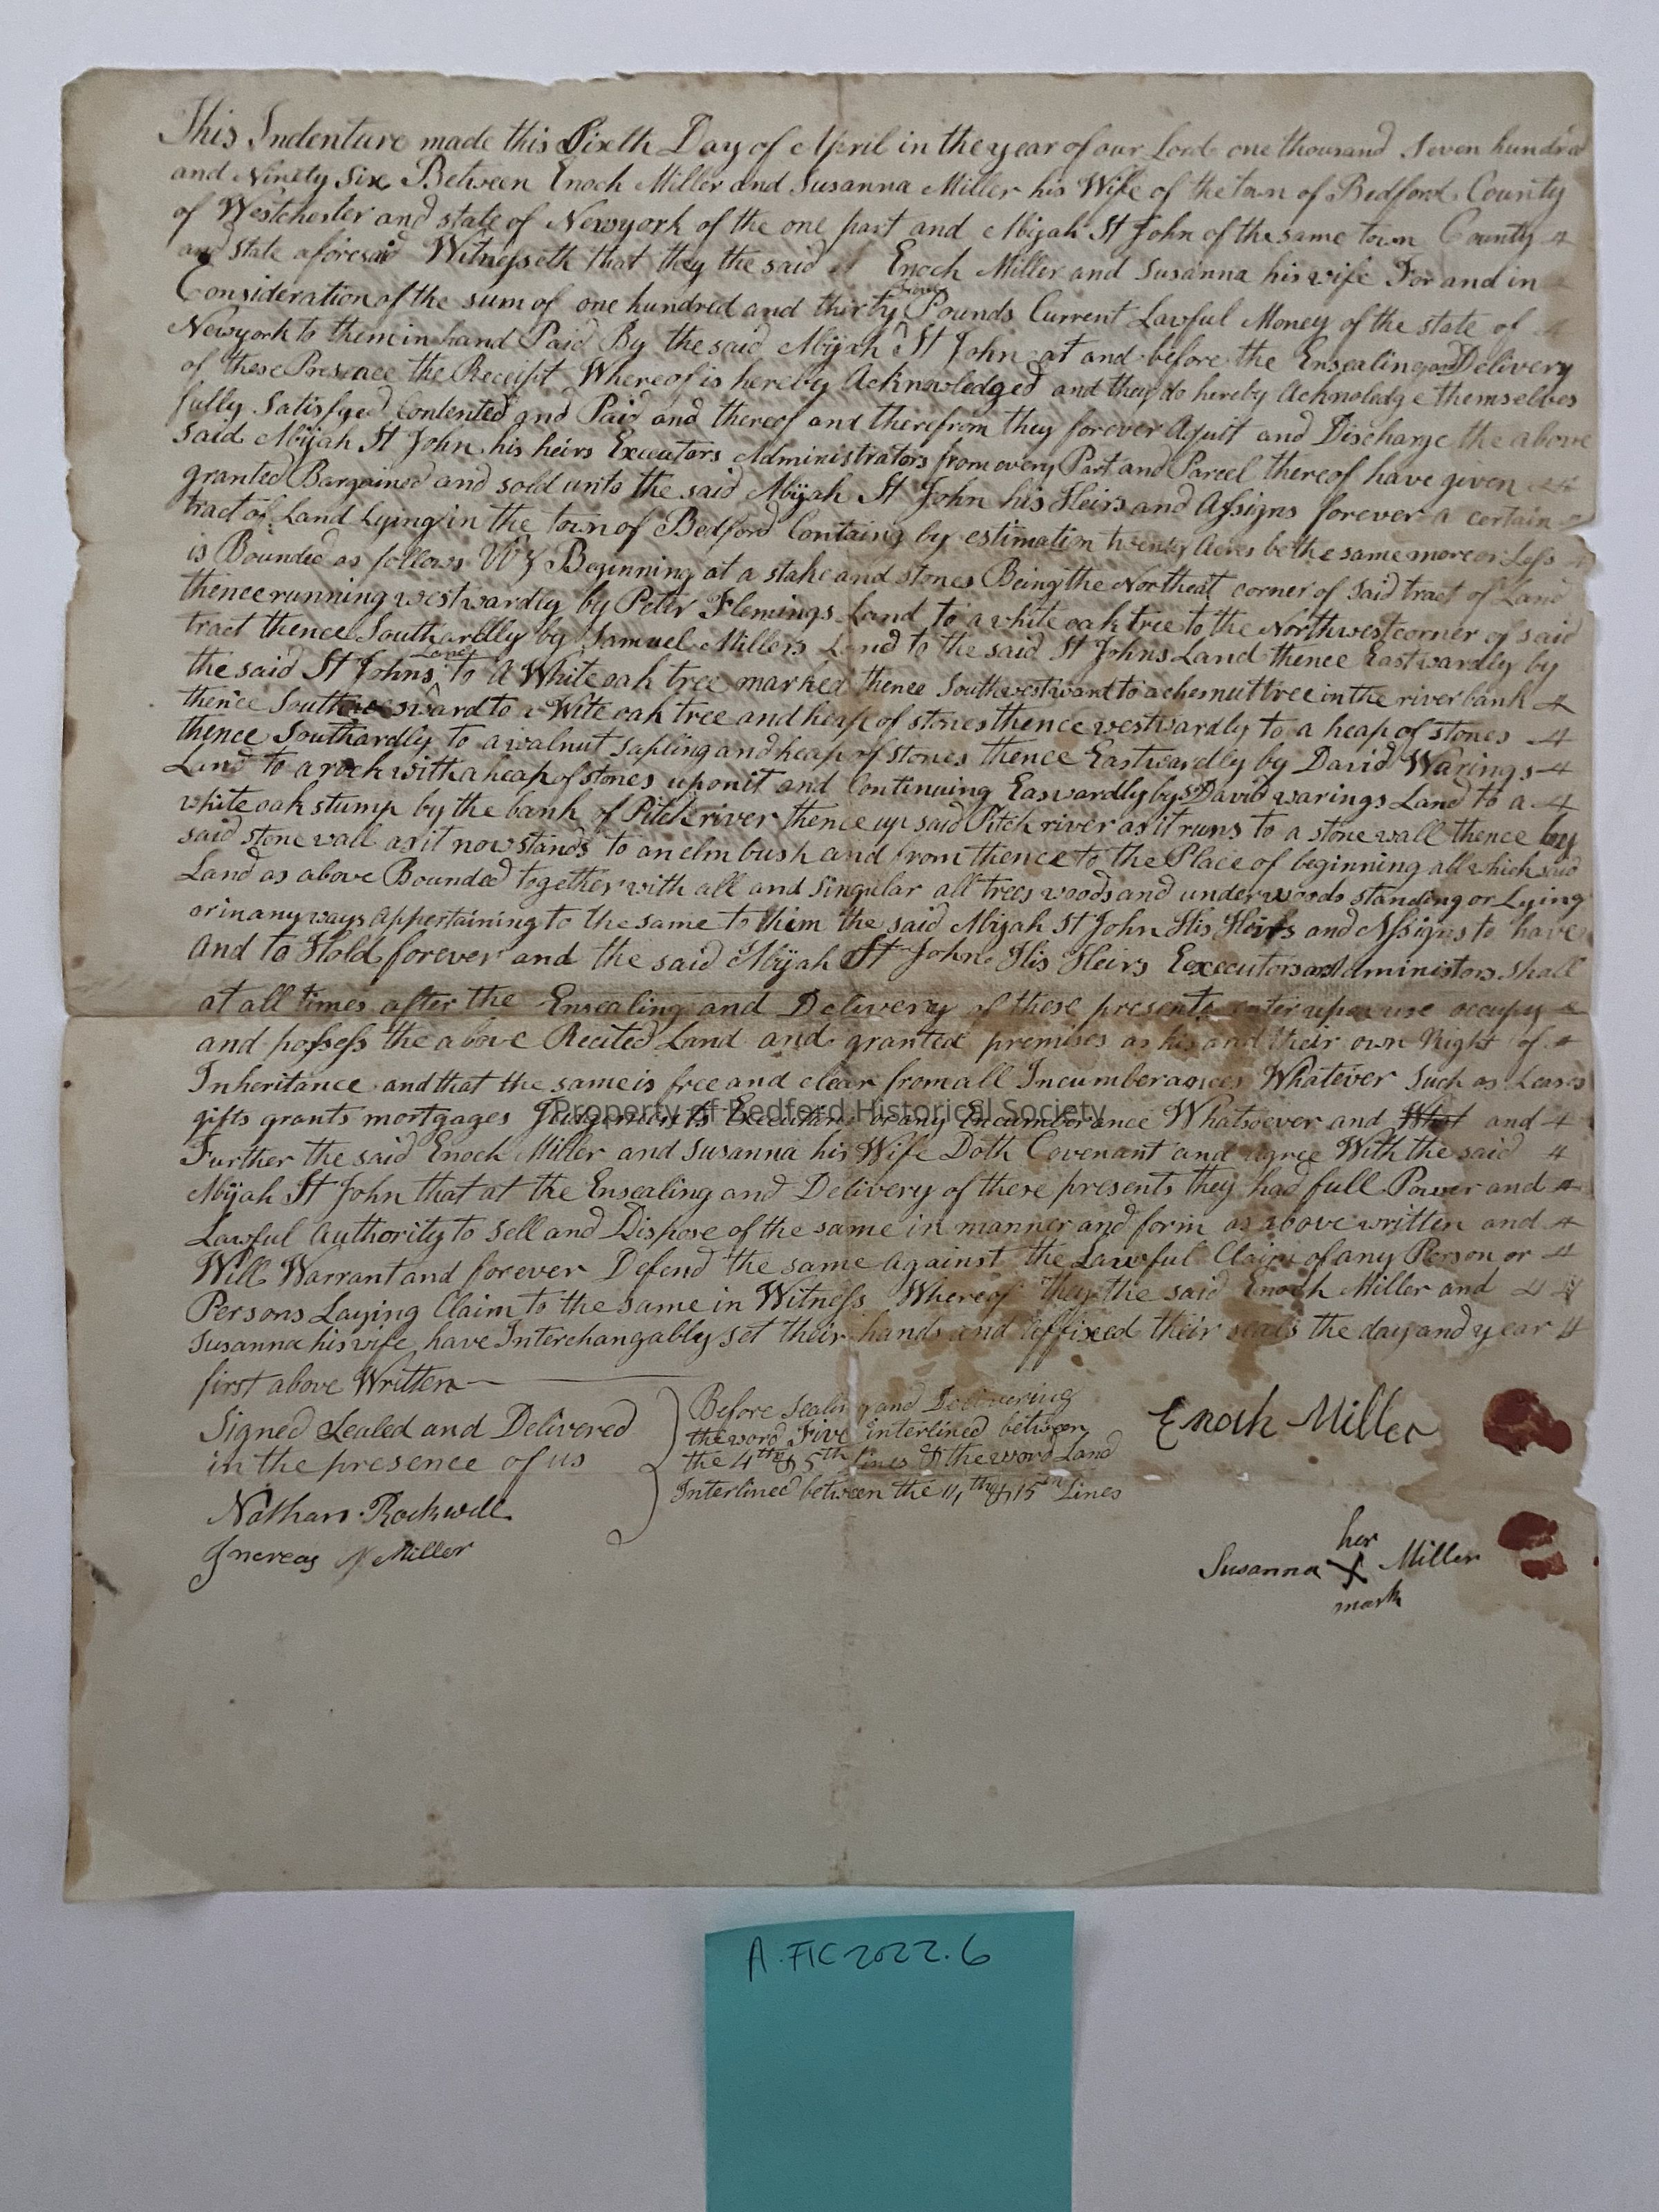 This Indenture made this Sixth Day of April in the year of our Lord one thousand Seven hundred
and Ninety Six Between Enoch Miller and Susanna Miller his Wife of the town of Bedford County
of Westchester and state of Newyork of the one part and Abijah St John of the same town County
and State aforesaid Witnesseth that they the said Enoch Miller and Susanna his wife For and in
five
Consideration of the sum of one hundred and thirty Pounds Current Lawful Money of the state of
Newyork to them in hand Paid By the said Abijah St John at and before the Ensealing and Delivery
of these Presence the Receipt Whereof is hereby Acknowledged and they do hereby Acknoledge themselves
fully Satisfyed Contented and Paid and thereof and therefrom they forever Aquit and Discharge the above
said Abijah St John his heirs Executors Administrators from every Part and Parcel thereof have given
granted Bargained and sold unto the said Abijah St John his Heirs and Assigns forever a certain
tract of Land Lying in the town of Bedford Containg by estimation twenty Acres be the same more or Less
is Bounded as follows Viz Beginning at a stake and stones Being the Northeat corner of said tract of Land
thence running westwardly by Peter Flemings Land to a white oak tree to the Northwest corner of said
tract thence Southardly by Samuel Millers Land to the said St Johns Land thence Eastwardly by
Land
the said St Johns to A White oak tree marked thence Southwestward to a chesnut tree in the river bank
thence Southwesward to a Wite oak tree and heap of stones thence westwardly to a heap of stones
thence Southardly to a walnut sapling and heap of stones thence Eastwardly by David Warings
Land to a rock with a heap of stones upon it and Continuing Easwardly by sd David warings Land to a
white oak stump by the bank of Pitch river thence up said Pitch river as it runs to a stone wall thence by
said stone wall as it now stands to an elm bush and from thence to the Place of beginning all which said
Land as above Bounded together with all and singular all trees woods and underwoods standing or Lying
or in any ways Appertaining to the same to them the said Abijah St John His Heirs and Assigns to have
And to Hold forever and the said Abijah St John His Heirs Eexecutors and Administors shall
at all times after the Ensealing and Delivery of these presents enter upon use occupy
and possess the above Recited Land and granted premises as his and their own Right of
Inheritance and that the same is free and clear from all Incumberances Whatever Such as Leases
gifts grants mortgages Judgements Executions or any Encumberance Whatsoever and What and
Property of Bedford Historical Society
Further the said Enoch Miller and Susanna his Wife Doth Covenant and agree With the said
Abijah St John that at the Ensealing and Delivery of these presents they had full Power and
Lawful Authority to sell and Dispose of the same in manner and form as above written and
Will Warrant and forever Defend the same against the Lawful Claim of any Person or
Persons Laying Claim to the same in Witness Whereof they the said Enoch Miller and
Susanna his wife have Interchangably set their hands and affixed their seals the day and year
first above Written
Signed Sealed and Delivered
in the presence of us
Nathan Rockwell
Increas Miller
Before sealing and Delivering
the word Five interlined between
the 4th & 5th lines & the word Land
Interlined between the 14th & 15th Lines
Enoch Miller
her
Susanna X Miller
mark
A.FIC2022.6